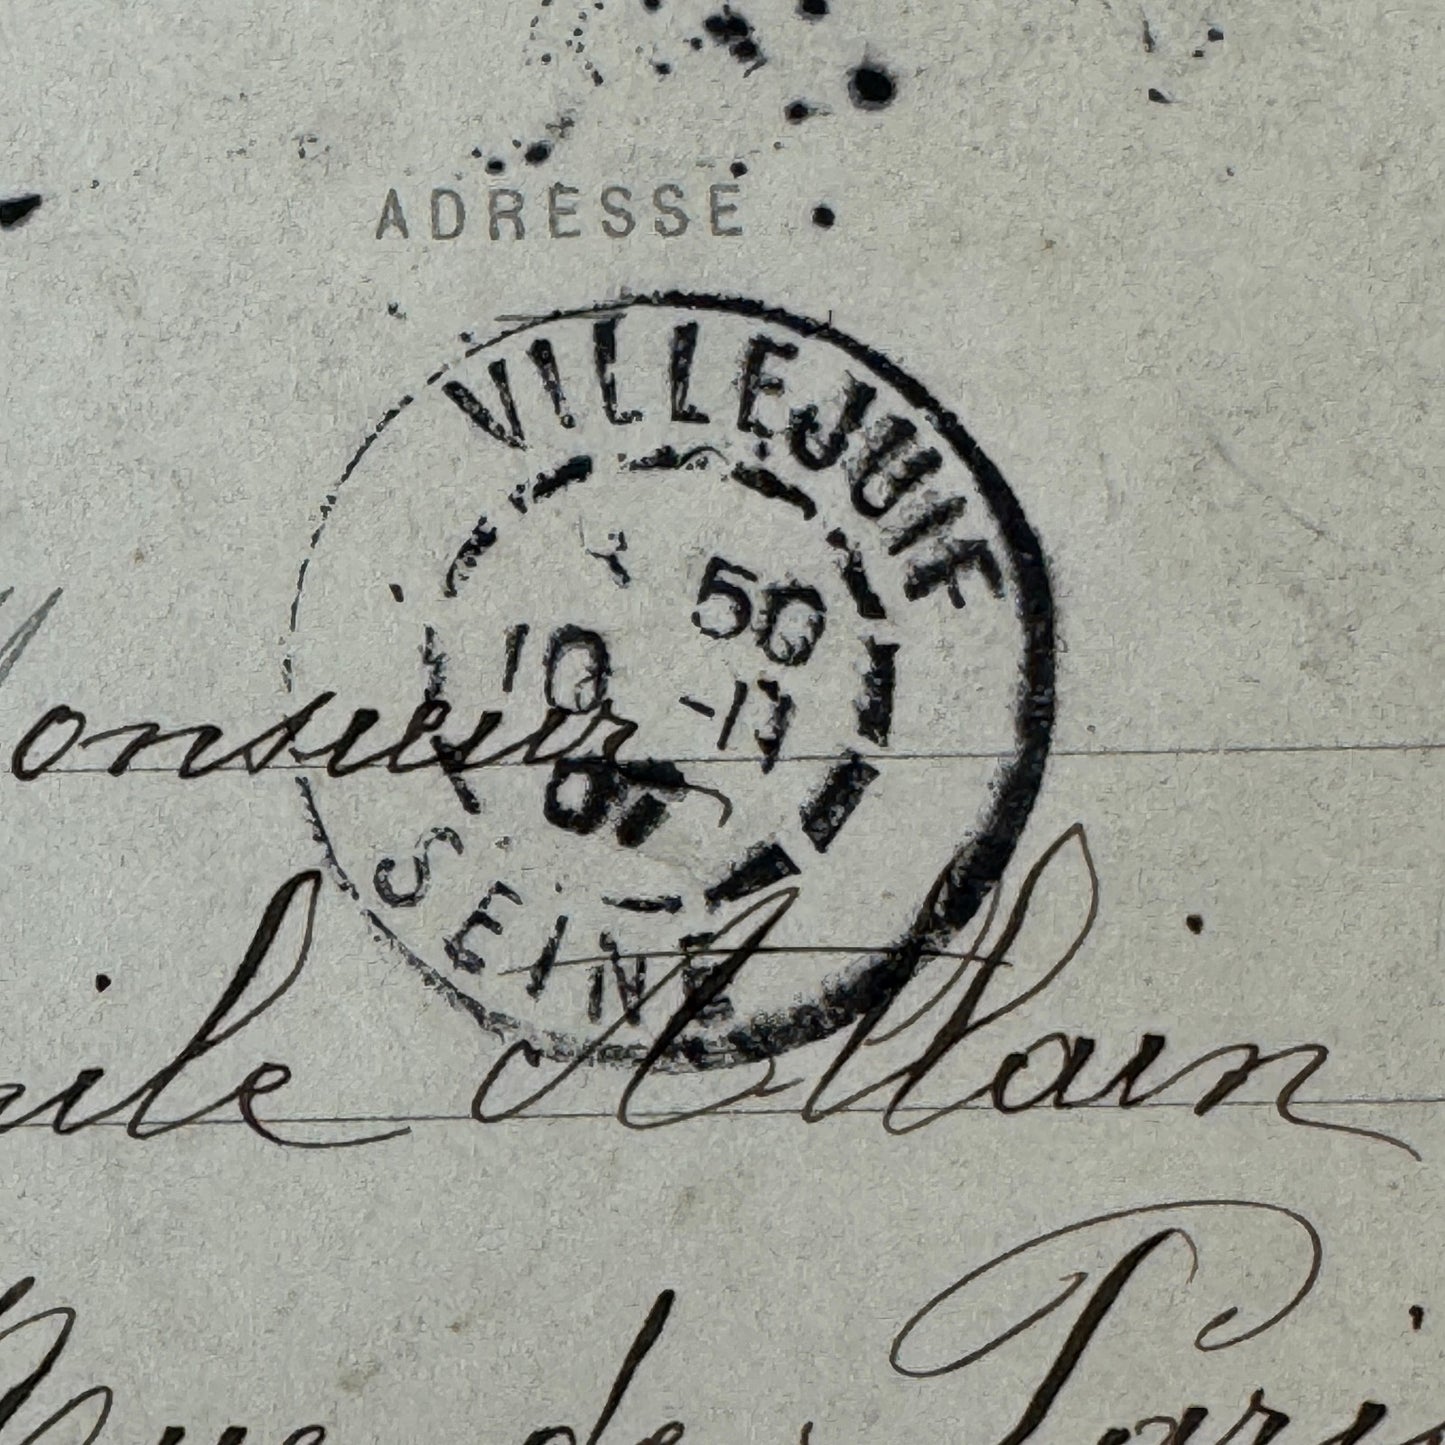 ADRESSE
VILLEJUIF
50
10 -11
01
SEINE
Monsieur
Allain
Rue de Paris